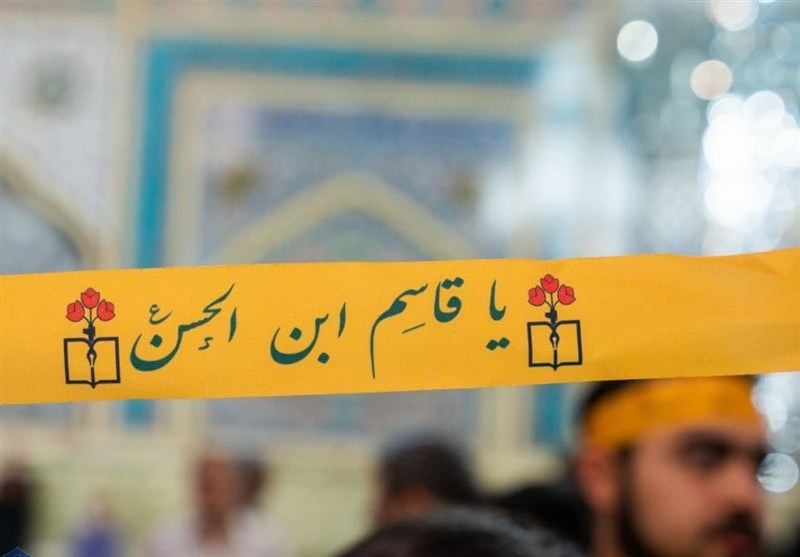 یا قاسِم ابن الحسن ع